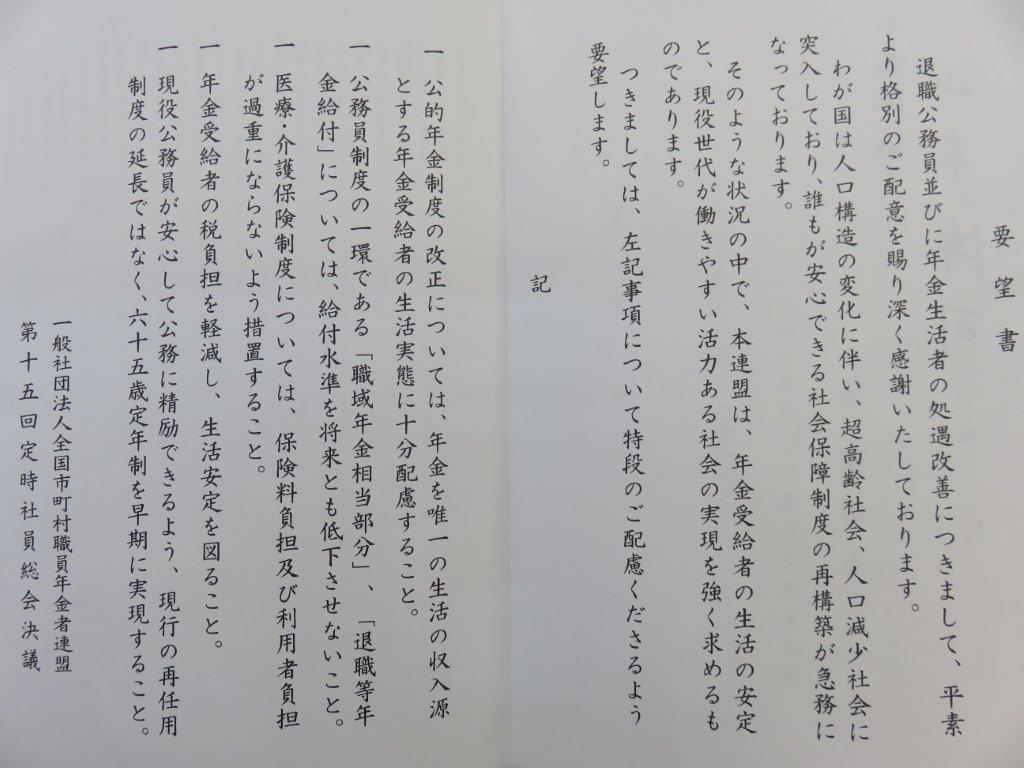 要望書
退職公務員並びに年金生活者の処遇改善につきまして、平素
より格別のご配意を賜り深く感謝いたしております。
わが国は人口構造の変化に伴い、超高齢社会、人口減少社会に
突入しており、誰もが安心できる社会保障制度の再構築が急務に
なっております。
そのような状況の中で、本連盟は、年金受給者の生活の安定
と、現役世代が働きやすい活力ある社会の実現を強く求めるも
のであります。
つきましては、左記事項について特段のご配慮くださるよう
要望します。
記
一 公的年金制度の改正については、年金を唯一の生活の収入源
とする年金受給者の生活実態に十分配慮すること。
一 公務員制度の一環である「職域年金相当部分」、「退職等年
金給付」については、給付水準を将来とも低下させないこと。
一 医療・介護保険制度については、保険料負担及び利用者負担
が過重にならないよう措置すること。
一 年金受給者の税負担を軽減し、生活安定を図ること。
一 現役公務員が安心して公務に精励できるよう、現行の再任用
制度の延長ではなく、六十五歳定年制を早期に実現すること。
一般社団法人全国市町村職員年金者連盟
第十五回定時社員総会決議